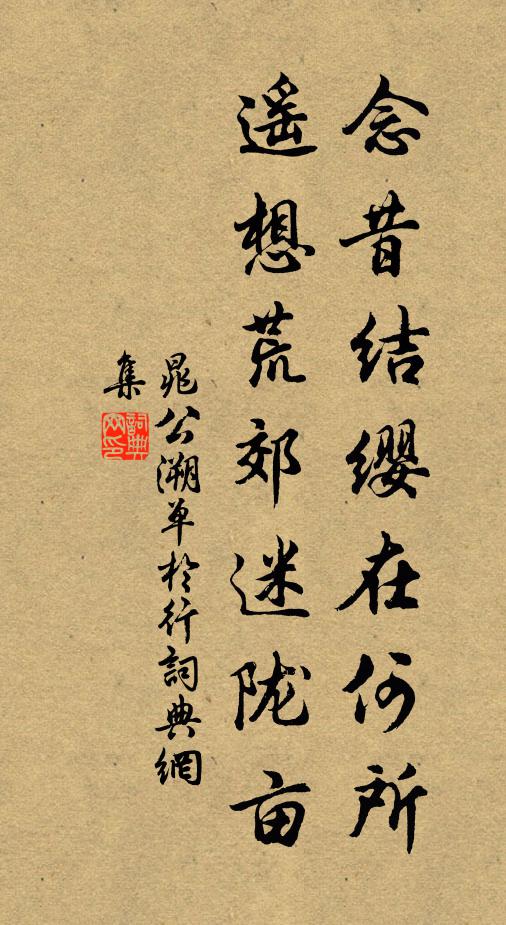 念昔结缨在何所
遥想荒郊迷陇亩
晁公溯单於行詞典網
集
詞典
网印